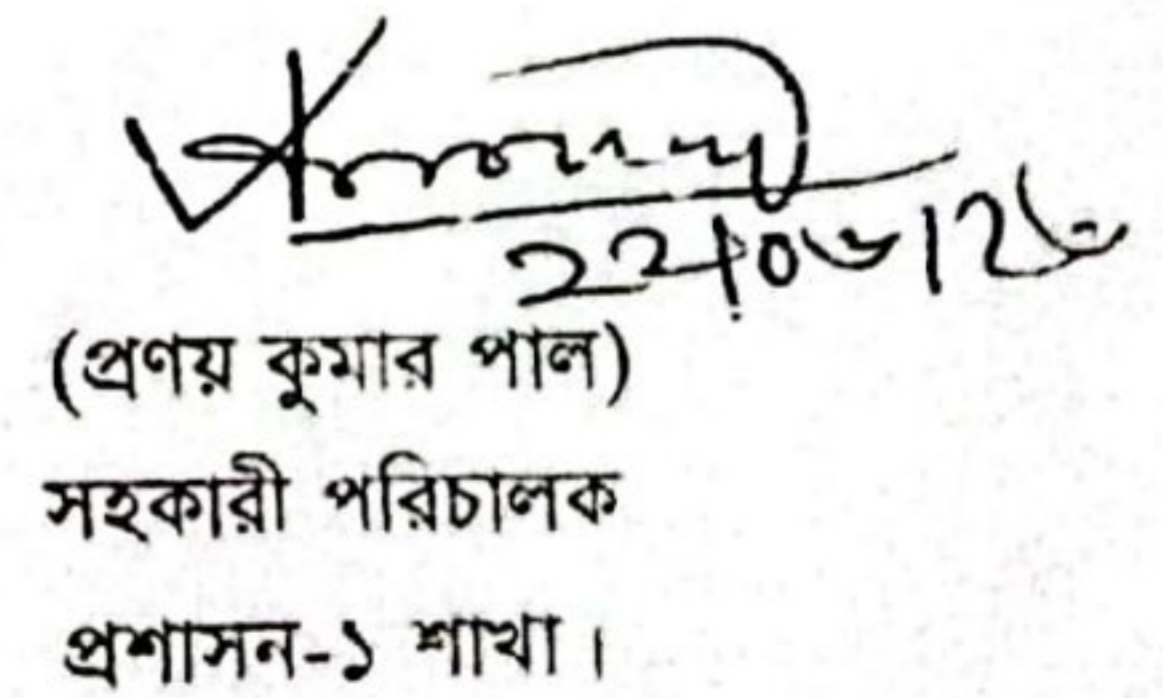 ২২/০৬/২৬
(প্রণয় কুমার পাল)
সহকারী পরিচালক
প্রশাসন-১ শাখা।